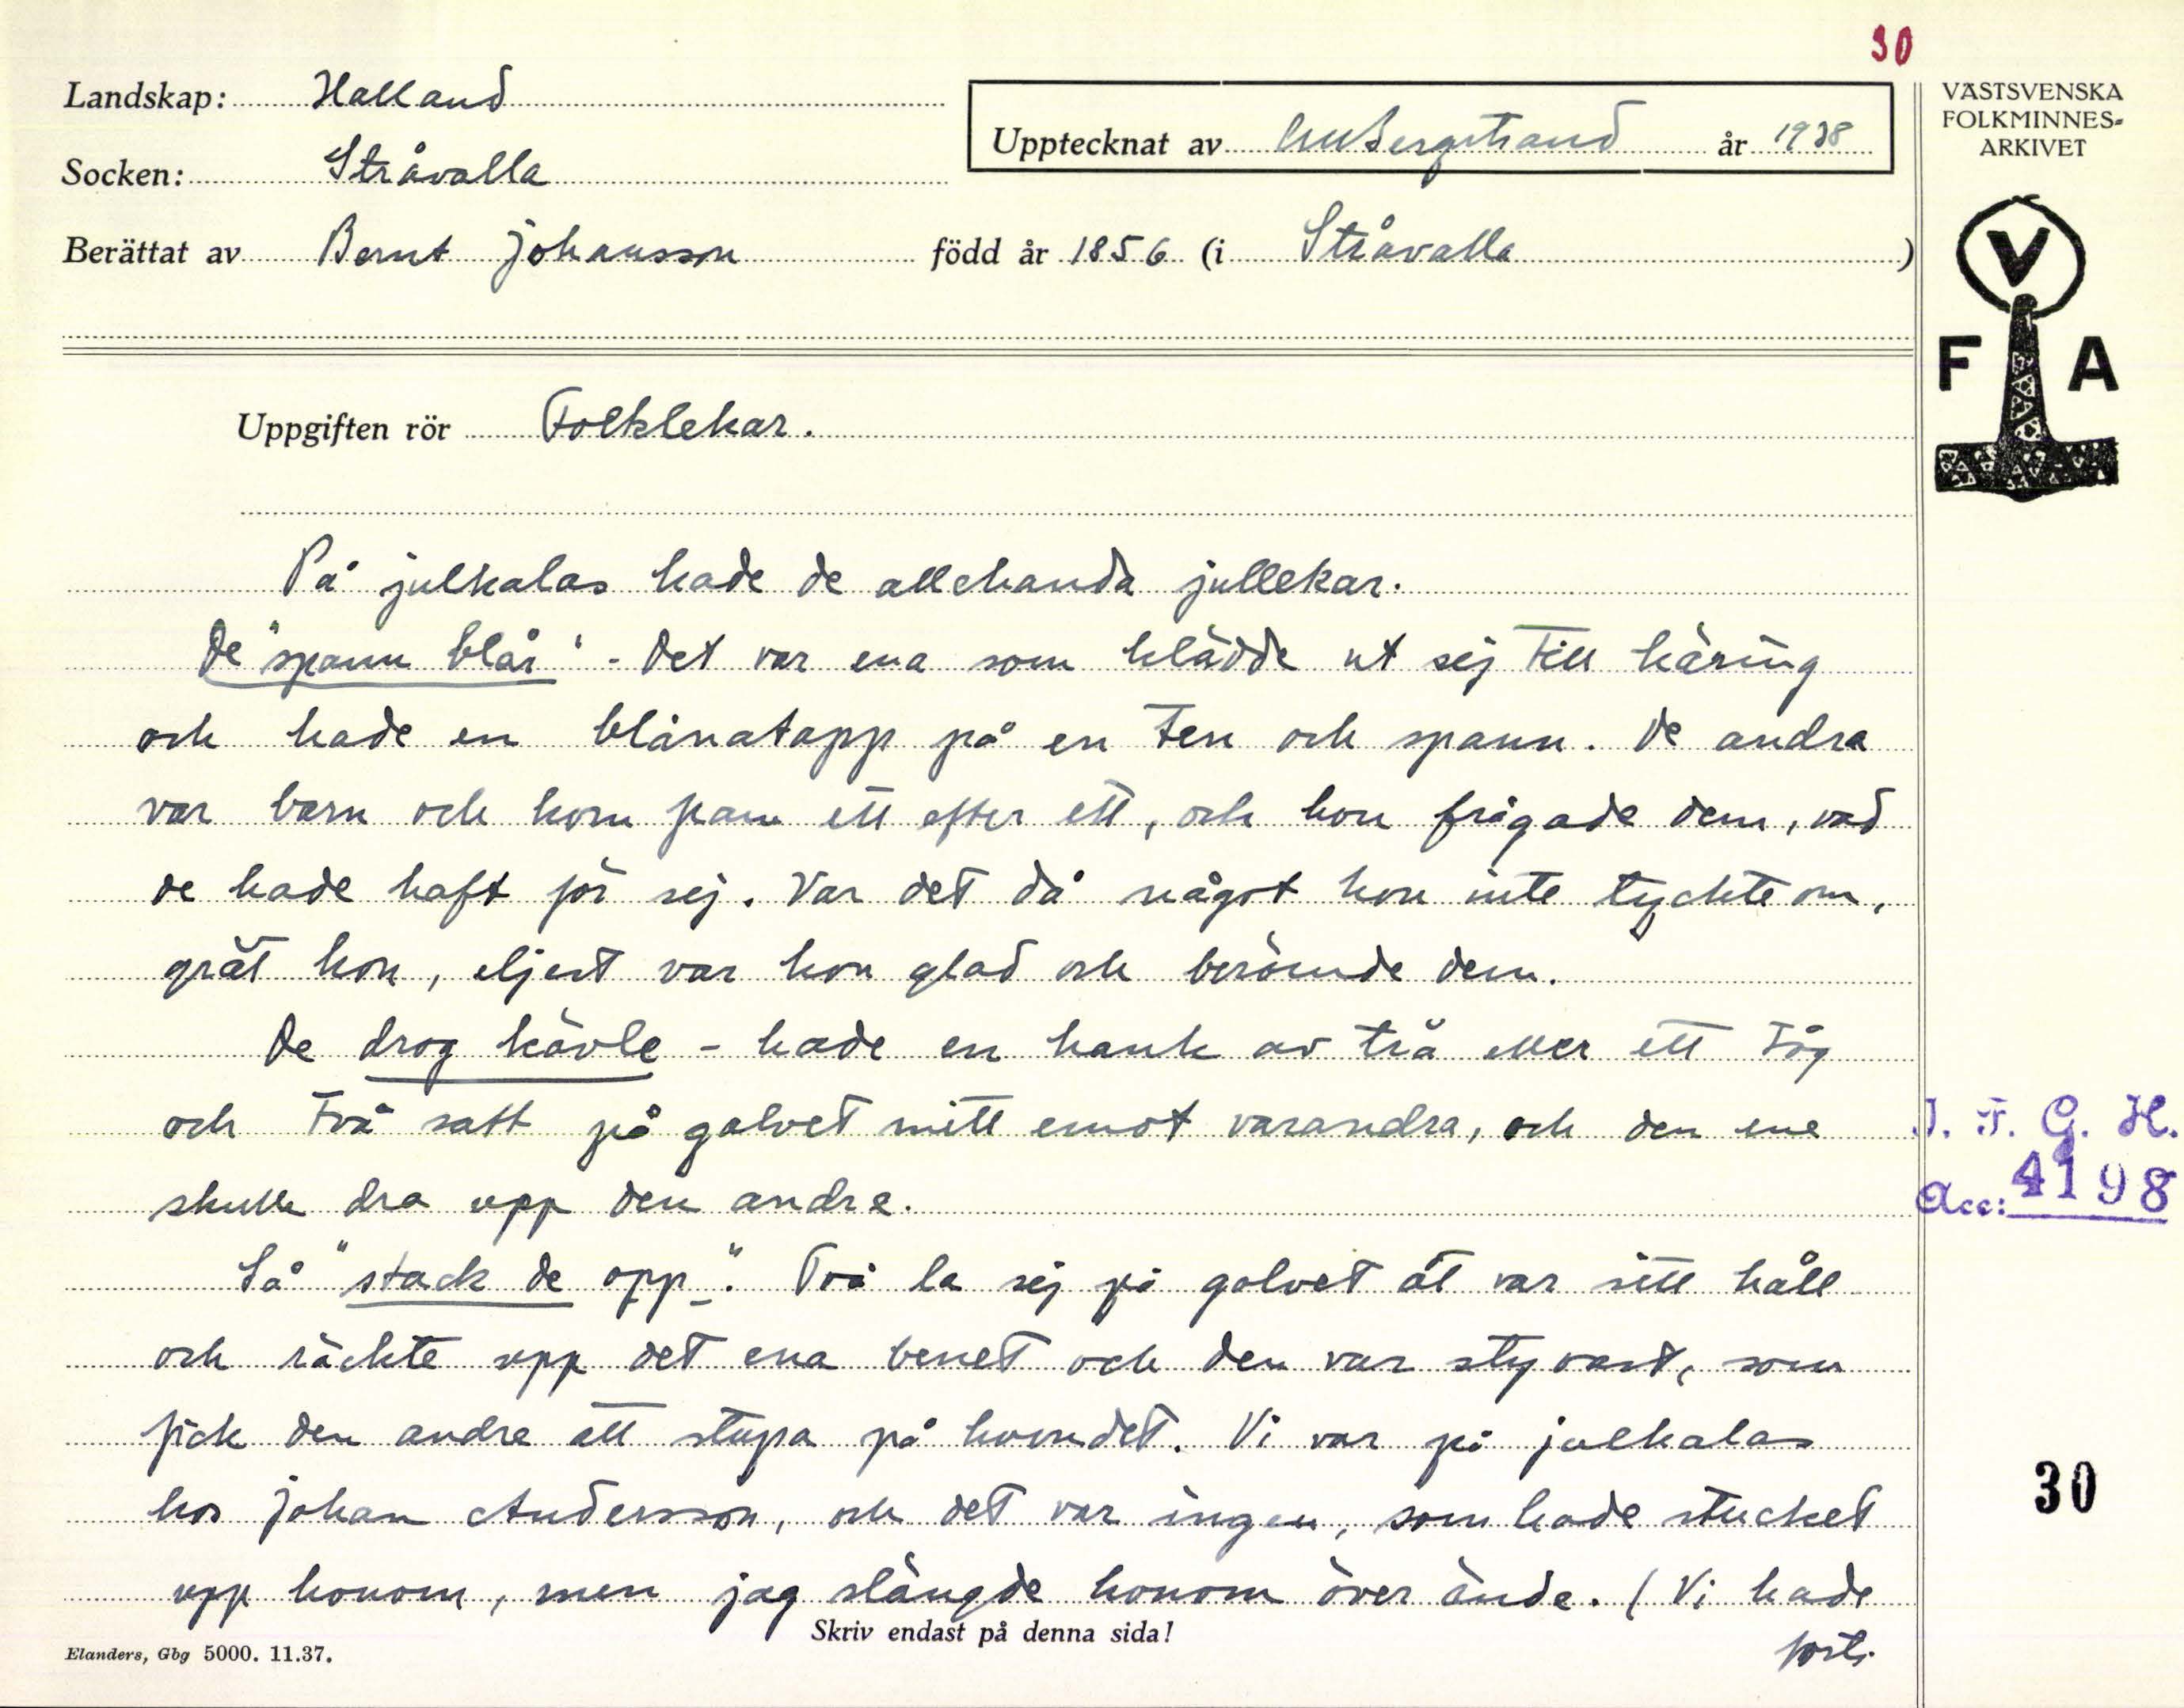 30
Landskap: Halland
Upptecknat av CMBergstrand år 1938
Socken: Stråvalla
Berättat av Bernt Johansson född år 1856 (i Stråvalla )
VÄSTSVENSKA
FOLKMINNES-
ARKIVET
V
F A
Uppgiften rör Folklekar.
På julkalas hade de allehanda jullekar.
De "spann blår" - Det var ena som klädde ut sej till käring
och hade en blånatapp på en ten och spann. De andra
var barn och kom fram ett efter ett, och hon frågade dem, vad
de hade haft för sej. Var det då något hon inte tyckte om,
grät hon, eljest var hon glad och berömde dem.
De drog kävle - hade en hank av trä eller ett tåg
och två satt på golvet mitt emot varandra, och den ene
skulle dra upp den andre.
Så "stack de opp". Två la sej på golvet åt var sitt håll
och räckte upp det ena benet och den var styvast, som
fick den andre att stupa på huvudet. Vi var på julkalas
hos Johan Andersson, och det var ingen, som hade stucket
upp honom, men jag slängde honom över ände. (Vi hade
forts.
I. F. G. H.
Acc: 4198
30
Skriv endast på denna sida!
Elanders, Gbg 5000. 11.37.